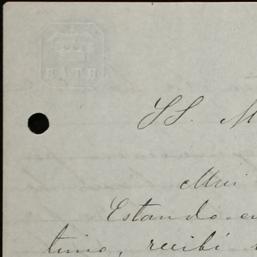 BATH
SS. M
Mui
Estando e
tino, recibí